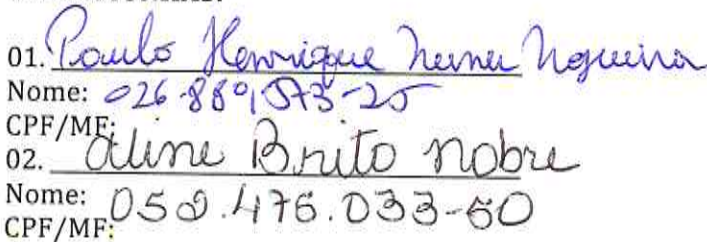 01. Paulo Henrique Nunes Nogueira
Nome: 026.880.573-25
CPF/MF:
02. Aline Brito Nobre
Nome: 052.476.033-50
CPF/MF: